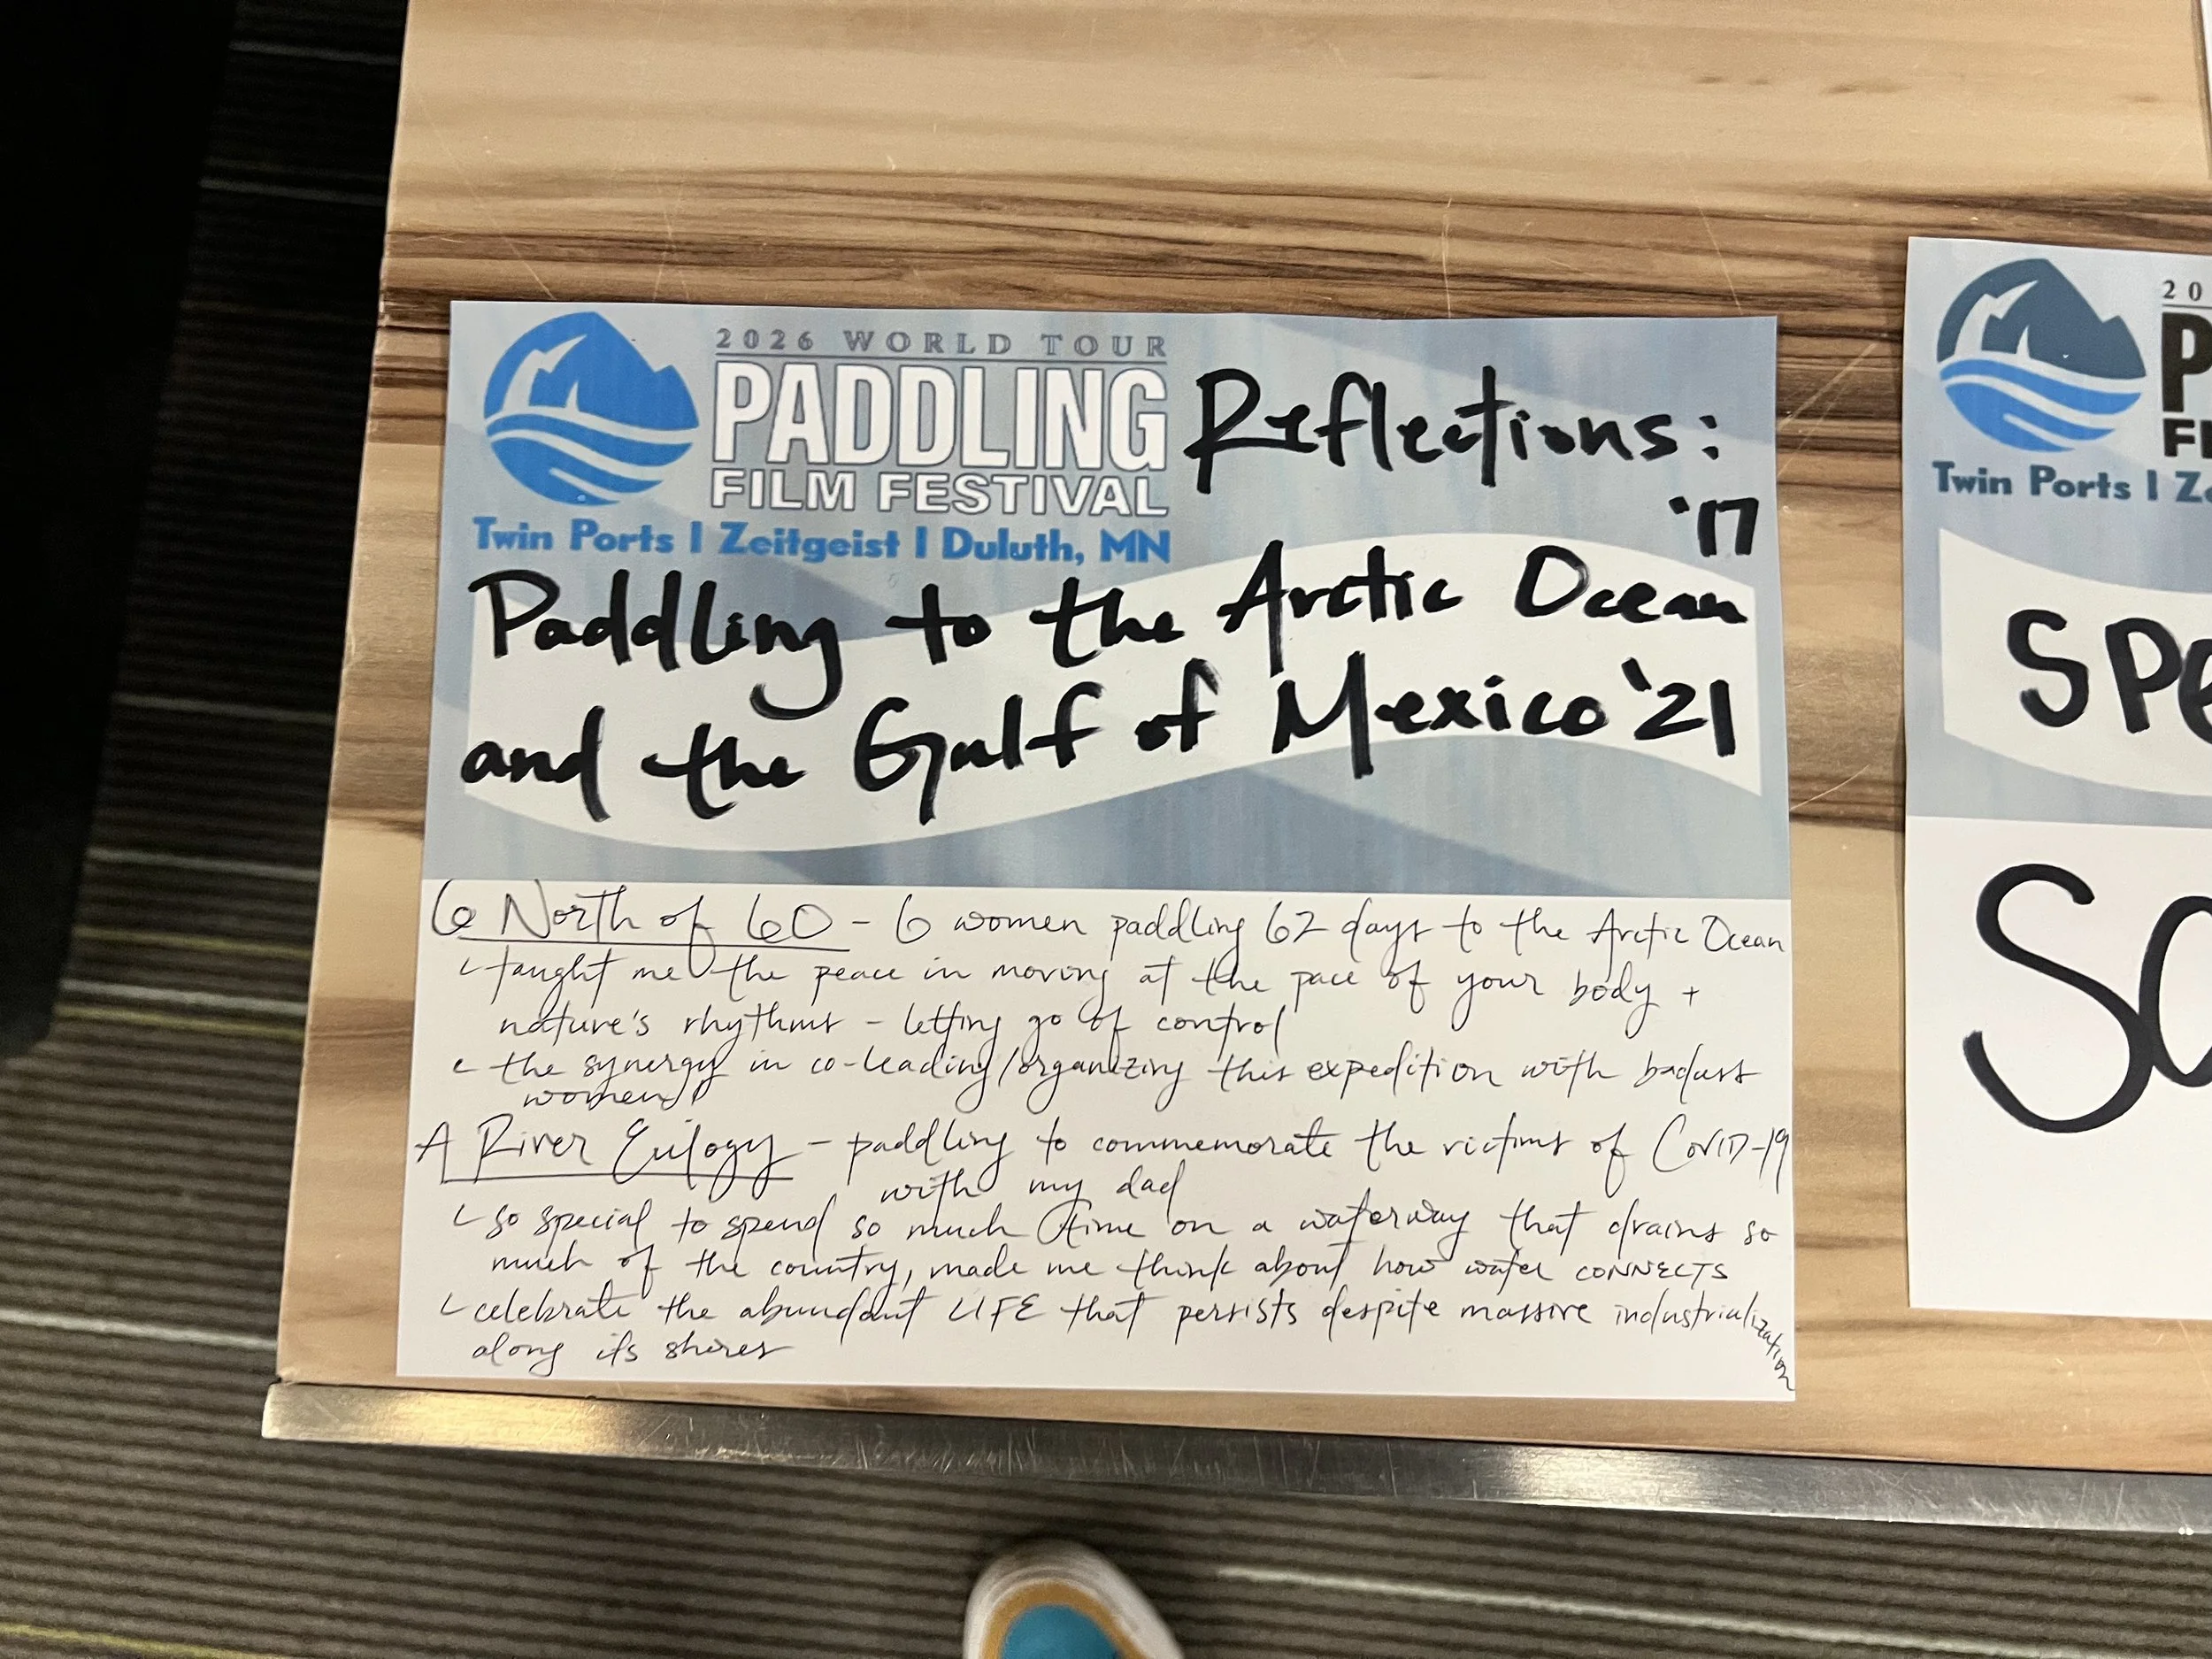 2026 WORLD TOUR
PADDLING
FILM FESTIVAL
Twin Ports | Zeitgeist | Duluth, MN
Reflections:
'17
Paddling to the Arctic Ocean
and the Gulf of Mexico '21
6 North of 60 - 6 women paddling 62 days to the Arctic Ocean
taught me the peace in moving at the pace of your body +
nature's rhythms - letting go of control
the synergy in co-leading/organizing this expedition with badass
women!
A River Eulogy - paddling to commemorate the victims of COVID-19
with my dad
so special to spend so much time on a waterway that drains so
much of the country, made me think about how water CONNECTS
celebrate the abundant LIFE that persists despite massive industrialization
along its shores
20
P
FI
Twin Ports | Ze
SPe
SO